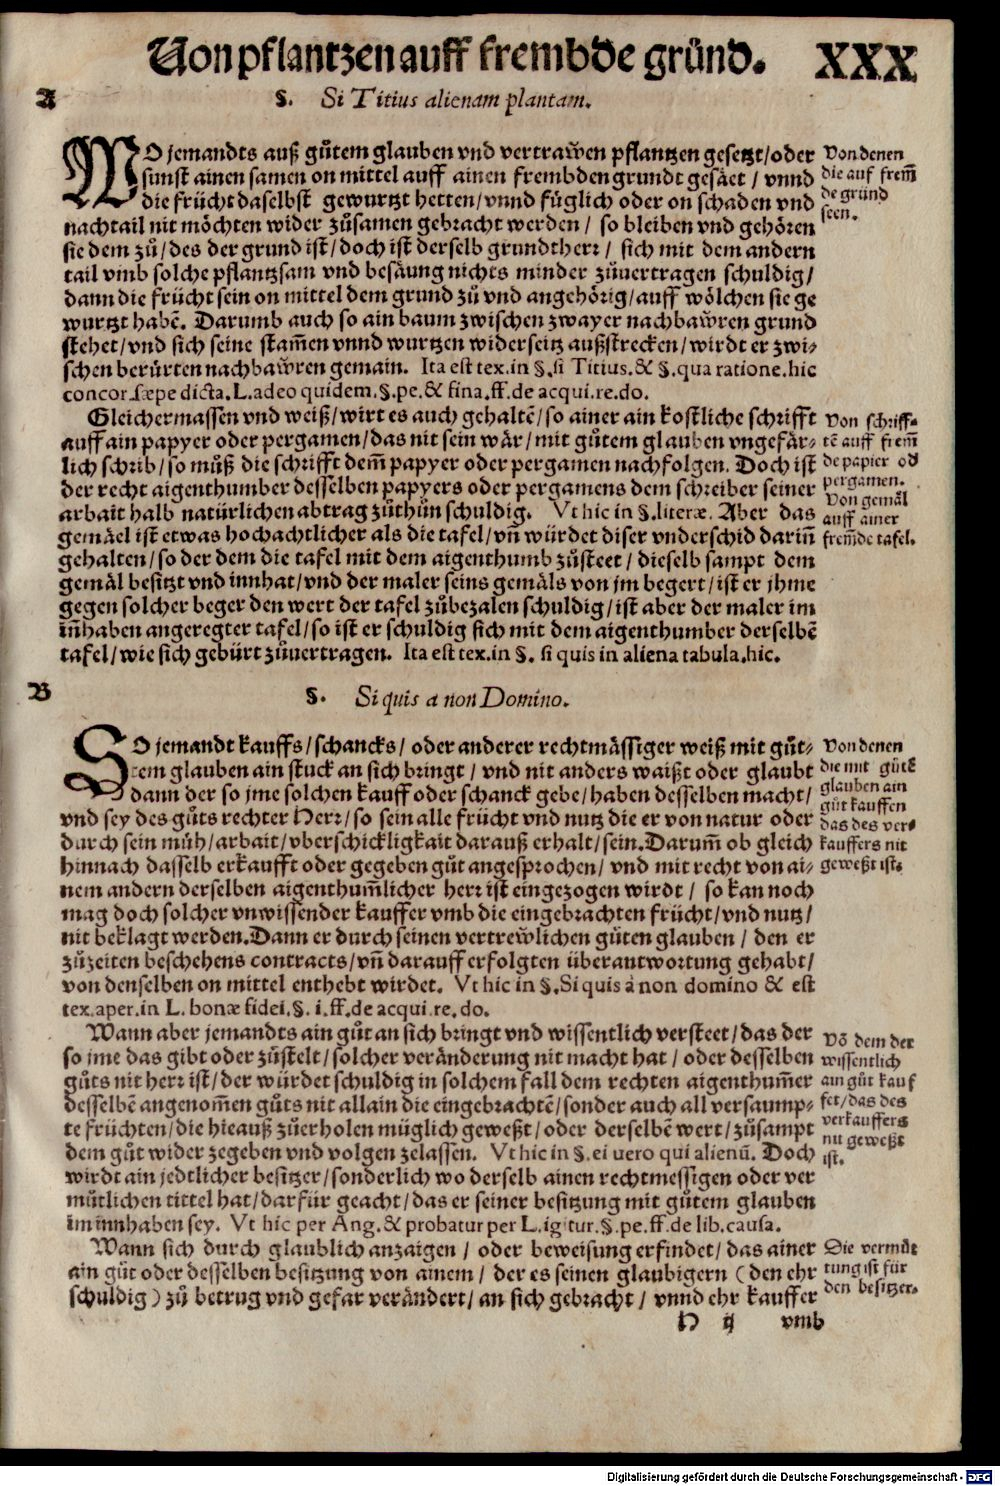 Von pflantzen auff frembde grůnd. XXX
A
§. Si Titius alienam plantam.
WO jemandts auß gůtem glauben vnd vertrawen pflantzen gesetzt/oder
sunst ainen samen on mittel auff ainen frembden grundt gesäet / vnnd
die frücht daselbst gewurtzt hetten/vnnd füglich oder on schaden vnd
nachtail nit möchten wider zůsamen gebracht werden / so bleiben vnd gehören
sie dem zů/des der grund ist/doch ist derselb grundtherr / sich mit dem andern
tail vmb solche pflantzsam vnd besäung nichts minder zůuertragen schuldig/
dann die frücht sein on mittel dem grund zů vnd angehörig/auff wölchen sie ge
wurtzt habē. Darumb auch so ain baum zwischen zwayer nachbawren grund
stehet/vnd sich seine stam̄en vnnd wurtzen widerseitz außstrecken/wirdt er zwi-
schen berürten nachbawren gemain. Ita est tex.in §.si Titius.& §.qua ratione.hic
concor.sæpe dicta.L.adeo quidem.§.pe.& fina.ff.de acqui.re.do.
Von denen
die auf frem̄
de grůnd
seen.
Gleichermassen vnd weiß/wirt es auch gehaltē/so ainer ain kostliche schrifft
auff ain papyer oder pergamen/das nit sein wär/mit gůtem glauben vngefär-
lich schrib/so můß die schrifft dem̄ papyer oder pergamen nachfolgen. Doch ist
der recht aigenthumber desselben papyers oder pergamens dem schreiber seiner
arbait halb natürlichen abtrag zůthůn schuldig. Vt hic in §.literæ. Aber das
gemäel ist etwas hochachtlicher als die tafel/vn̄ würdet diser vnderschid darin̄
gehalten/so der dem die tafel mit dem aigenthumb zůsteet/dieselb sampt dem
gemäl besitzt vnd innhat/vnd der maler seins gemäls von jm begert/ist er jhme
gegen solcher beger den wert der tafel zůbezalen schuldig/ist aber der maler im
in̄haben angeregter tafel/so ist er schuldig sich mit dem aigenthumber derselbē
tafel/wie sich gebürt zůuertragen. Ita est tex.in §. si quis in aliena tabula.hic.
Von schriff-
tē auff frem̄
de papier od
pergamen.
Von gemäl
auff ainer
frem̄de tafel.
B
§. Si quis a non Domino.
SO jemandt kauffs/schancks/ oder anderer rechtmässiger weiß mit gůt-
tem glauben ain stuck an sich bringt / vnd nit anders waißt oder glaubt
dann der so jme solchen kauff oder schanck gebe/haben desselben macht/
vnd sey des gůts rechter Herr/so sein alle frücht vnd nutz die er von natur oder
durch sein müh/arbait/vberschickligkait darauß erhalt/sein.Darum̄ ob gleich
hinnach dasselb erkaufft oder gegeben gůt angesprochen/vnd mit recht von ai-
nem andern derselben aigenthum̄licher herr ist eingezogen wirdt / so kan noch
mag doch solcher vnwissender kauffer vmb die eingebrachten frücht/vnd nutz/
nit beklagt werden.Dann er durch seinen vertrewlichen gůten glauben / den er
zůzeiten beschehens contracts/vn̄ darauff erfolgten überantwortung gehabt/
von denselben on mittel enthebt wirdet. Vt hic in §.Si quis a non domino & est
tex.aper.in L. bonæ fidei.§. i.ff.de acqui.re.do.
Von denen
die mit gůtē
glauben ain
gůt kauffen
das des ver-
kauffers nit
geweßt ist.
Wann aber jemandts ain gůt an sich bringt vnd wissentlich versteet/das der
so jme das gibt oder zůstelt/solcher veränderung nit macht hat / oder desselben
gůts nit herr ist/der würdet schuldig in solchem fall dem rechten aigenthum̄er
desselbē angenom̄en gůts nit allain die eingebrachtē/sonder auch all versaump-
te früchten/die hieauß zůerholen müglich geweßt/oder derselbē wert/zůsampt
dem gůt wider zegeben vnd volgen zelassen. Vt hic in §.ei uero qui alienū. Doch
wirdt ain jedtlicher besitzer/sonderlich wo derselb ainen rechtmessigen oder ver
můtlichen tittel hat/darfür geacht/das er seiner besitzung mit gůtem glauben
im innhaben sey. Vt hic per Ang.& probatur per L.igitur.§.pe.ff.de lib.causa.
Vō dem der
wissentlich
ain gůt kauf
fet/das des
verkauffers
nit geweßt
ist.
Wann sich durch glaublich anzaigen / oder beweisung erfindet/das ainer
ain gůt oder desselben besitzung von ainem / der es seinen glaubigern (den ehr
schuldig) zů betrug vnd gefar verändert/an sich gebracht / vnnd ehr kauffer
Die vermůt
tung ist für
den besitzer.
H ij vmb
Digitalisierung gefördert durch die Deutsche Forschungsgemeinschaft - DFG